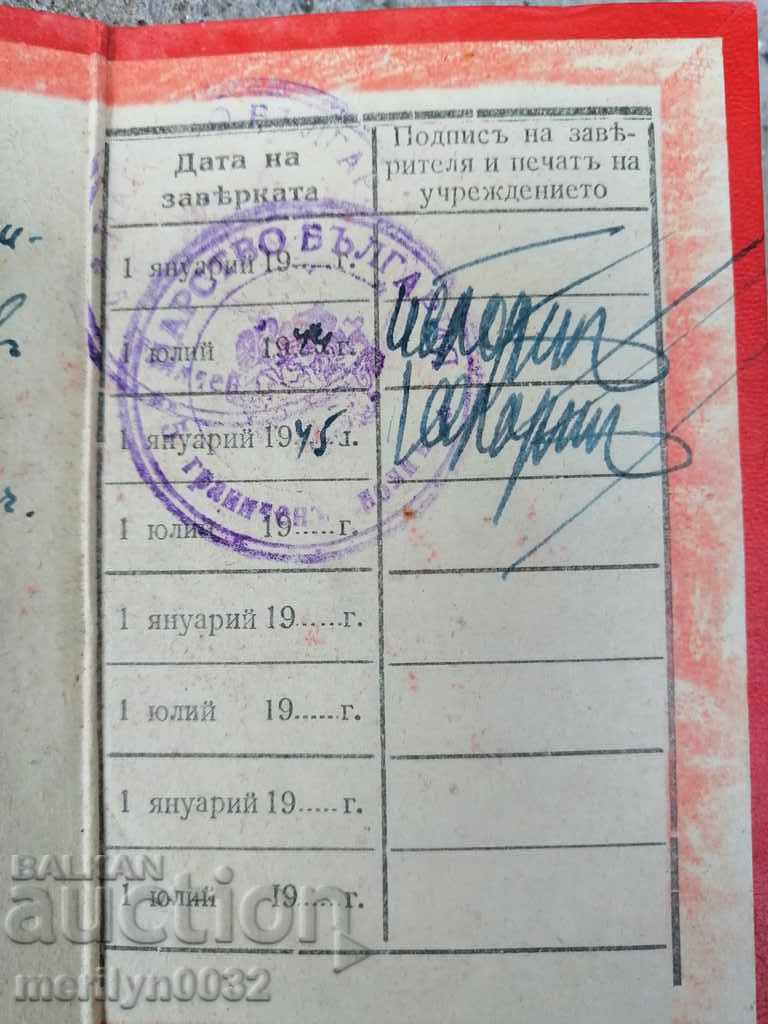 Дата на
завѣрката
Подписъ на завѣ-
рителя и печатъ на
учреждението
1 януарий 19.....г.
1 юлий 1944 г.
1 януарий 1945 г.
1 юлий 19.....г.
1 януарий 19.....г.
1 юлий 19.....г.
1 януарий 19..... г.
1 юлий 19.....г.
ЦАРСТВО БЪЛГАРИЯ
граниченъ
BALKAN
auction
merilyn0032